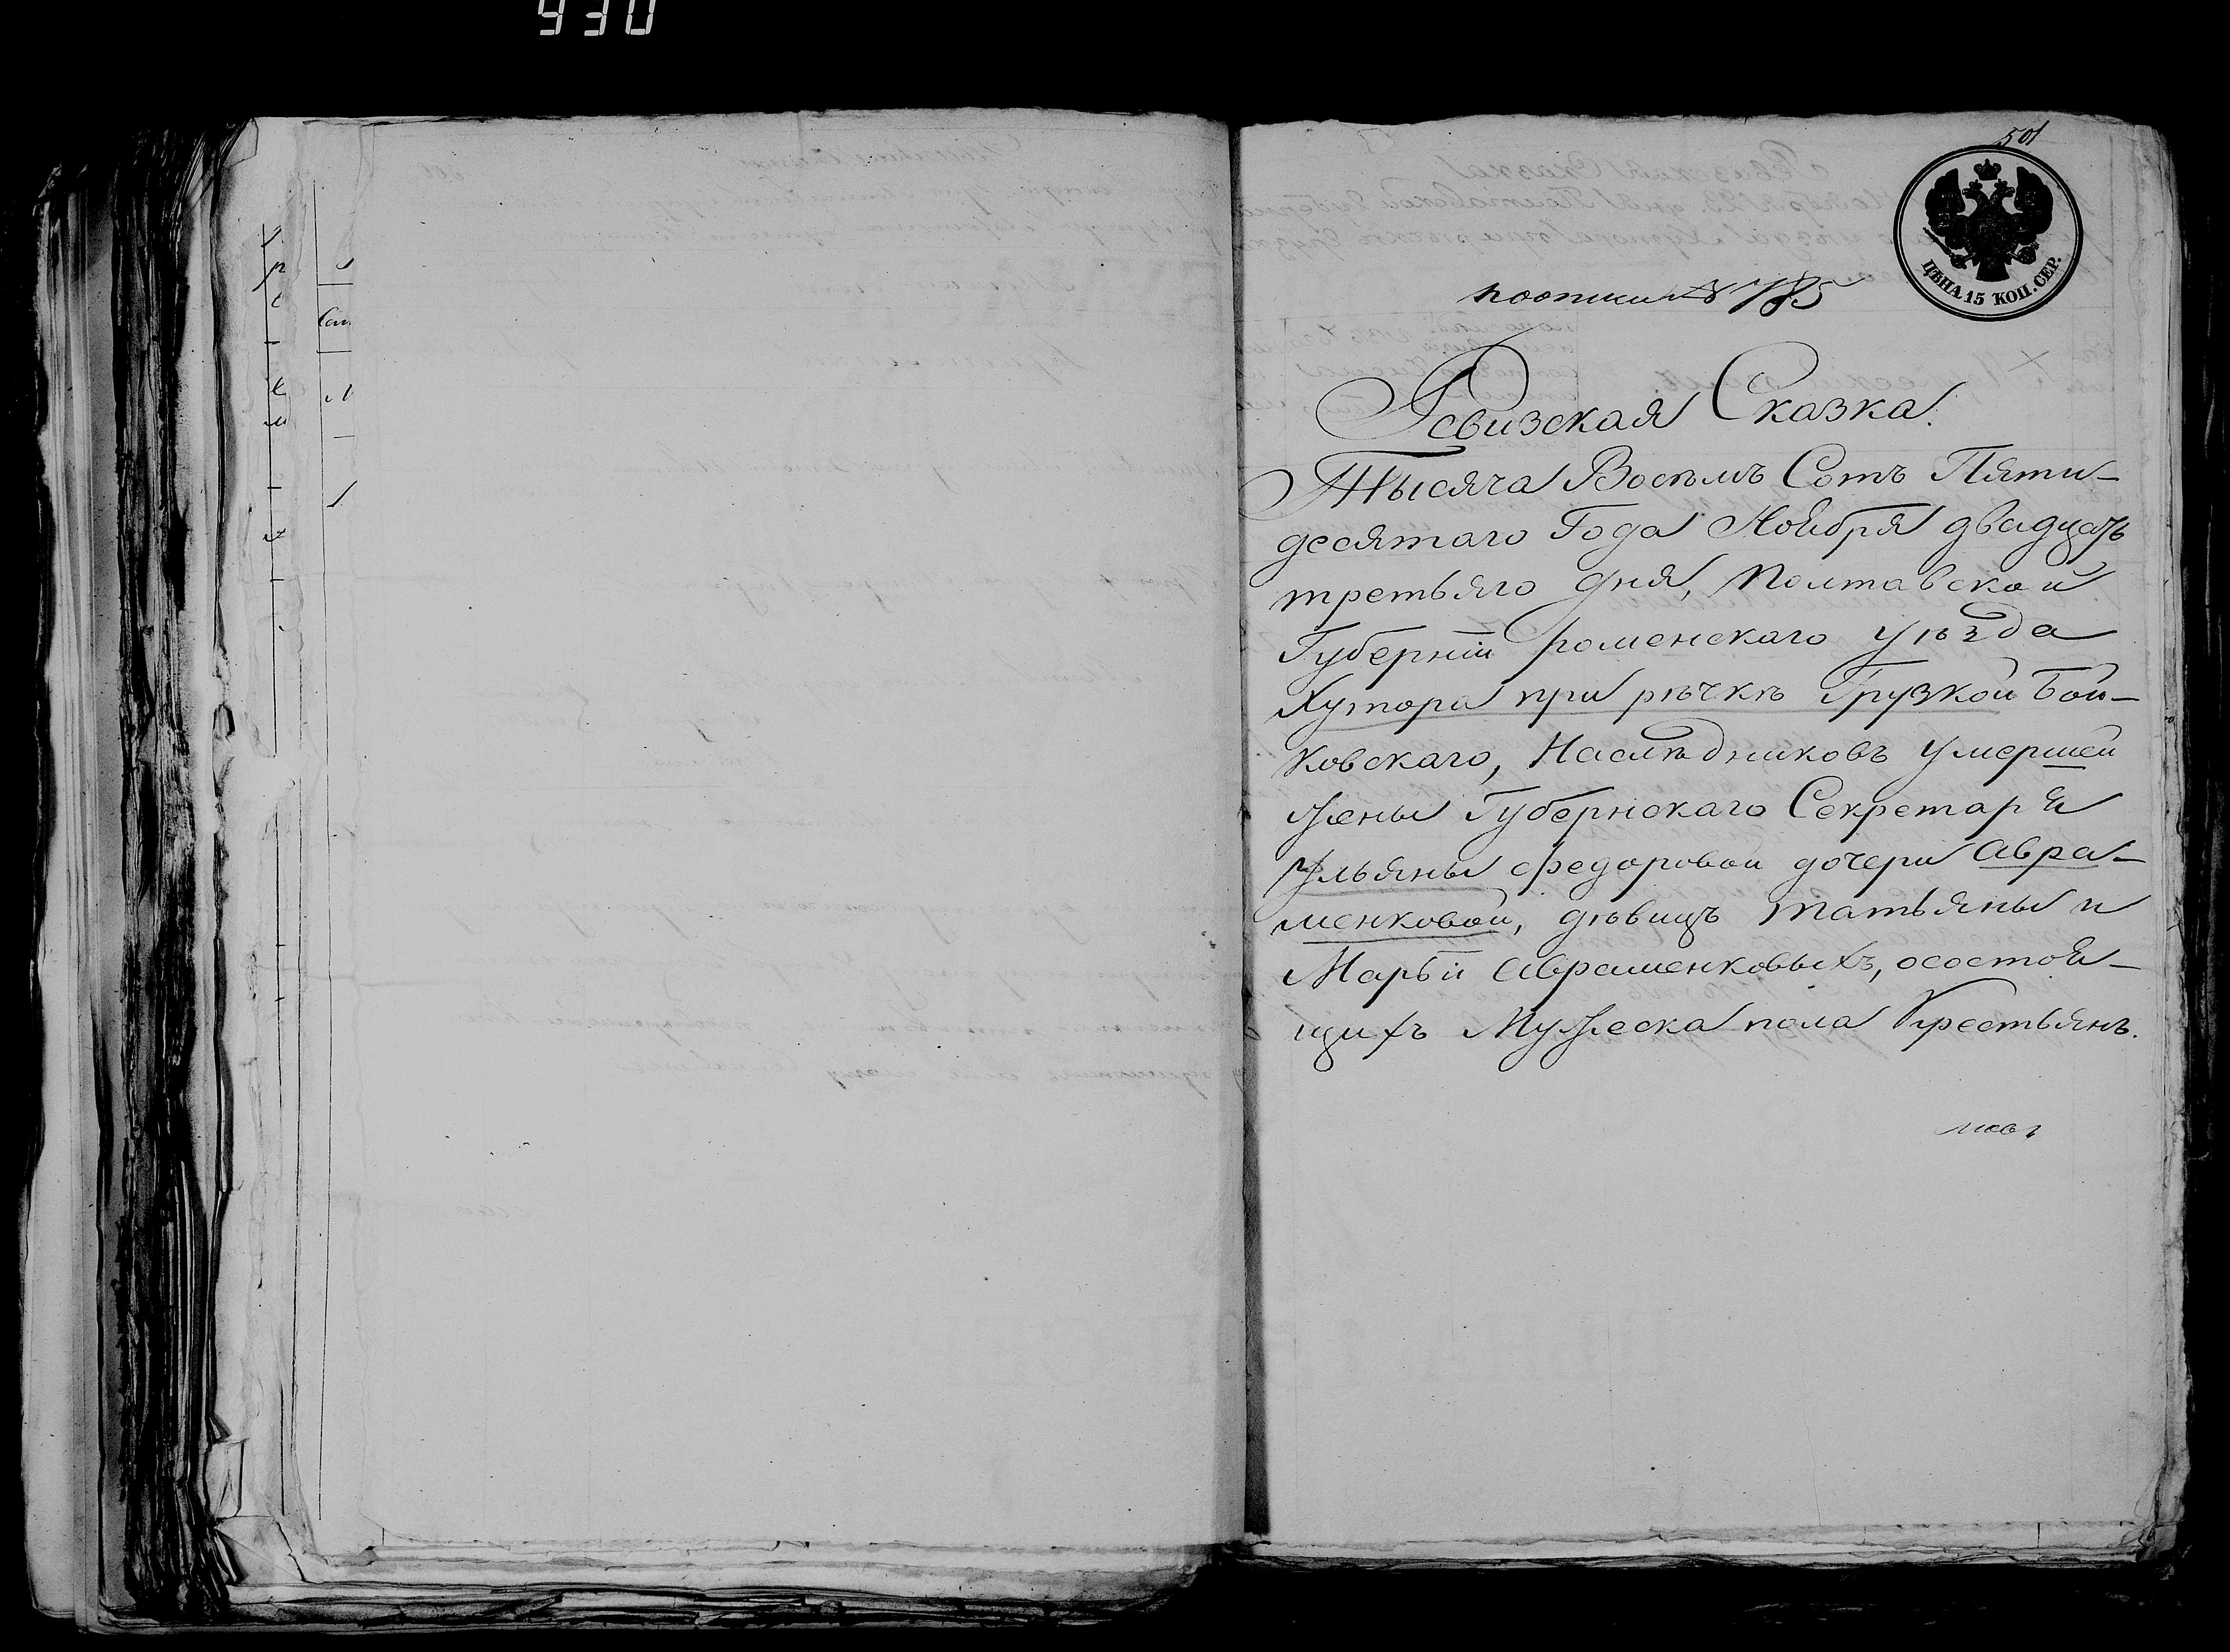 930
501
ЦѢНА 15 КОП. СЕР.
по описи № 785
Ревизская Сказка.
Тысяча Восемъ Сотъ Пяти-
десятаго Года Ноября двадцать
третьяго дня, Полтавской
Губерніи роменскаго уѣзда
Хутора при рѣчкѣ Грузкой Бой-
ковскаго, Наслѣдниковъ умершей
жены Губернскаго Секретаря
Ульяны Федоровой дочери Авра-
менковой, дѣвицъ Татьяны и
Марьи Авраменковыхъ, осостоя-
щихъ Мужеска пола Крестьянъ.